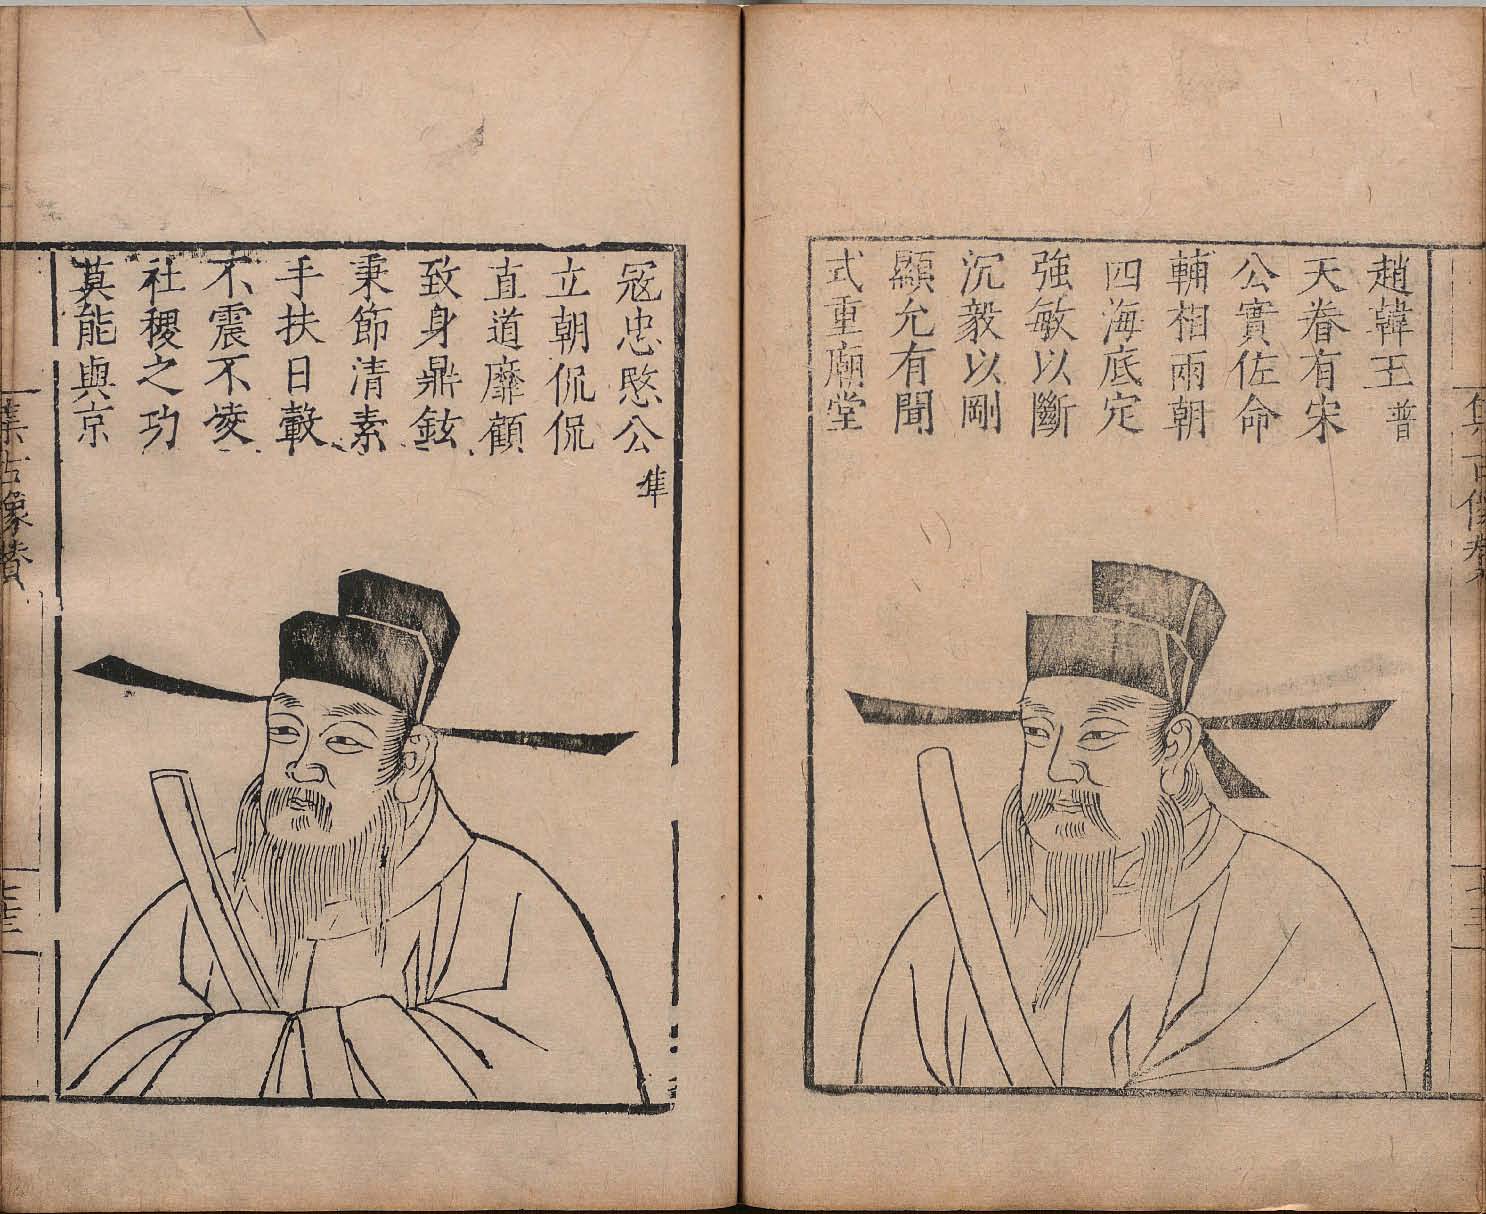 趙韓王 普
天眷有宋
公實佐命
輔相兩朝
四海底定
強敏以斷
沉毅以剛
顯允有聞
式重廟堂
寇忠愍公 隼
立朝侃侃
直道靡顧
致身鼎鉉
秉節清素
手扶日轂
不震不凌
社稷之功
莫能與京
集古像贊
七三